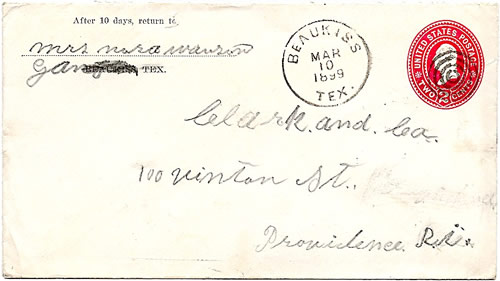 After 10 days, return to
Mrs Nora
BEAUKISS, TEX.
BEAUKISS
MAR
10
1899
TEX.
UNITED STATES POSTAGE
TWO 2 CENTS
Clark. and. Co.
100 Vinton St.
Providence R.I.